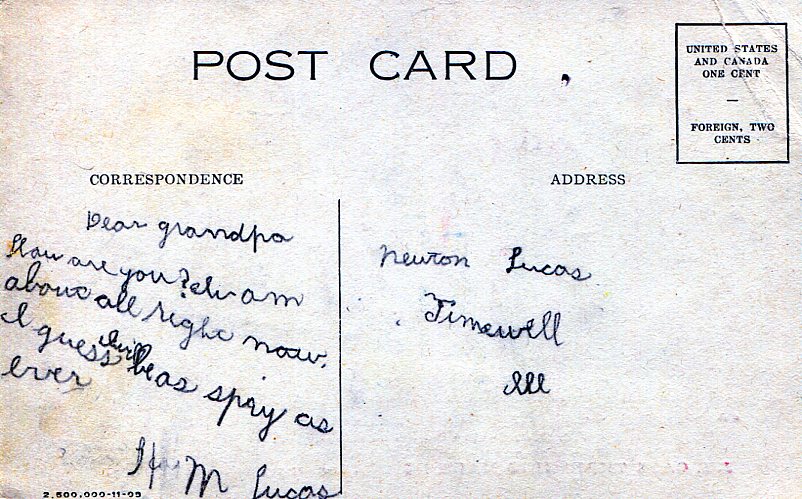 POST CARD
UNITED STATES
AND CANADA
ONE CENT
—
FOREIGN, TWO
CENTS
CORRESPONDENCE
ADDRESS
Dear grandpa
How are you? I am
about all right now.
I guess I will be as spry as
ever
H M Lucas
Newton Lucas
Timewell
Ill
2,500,000-11-09